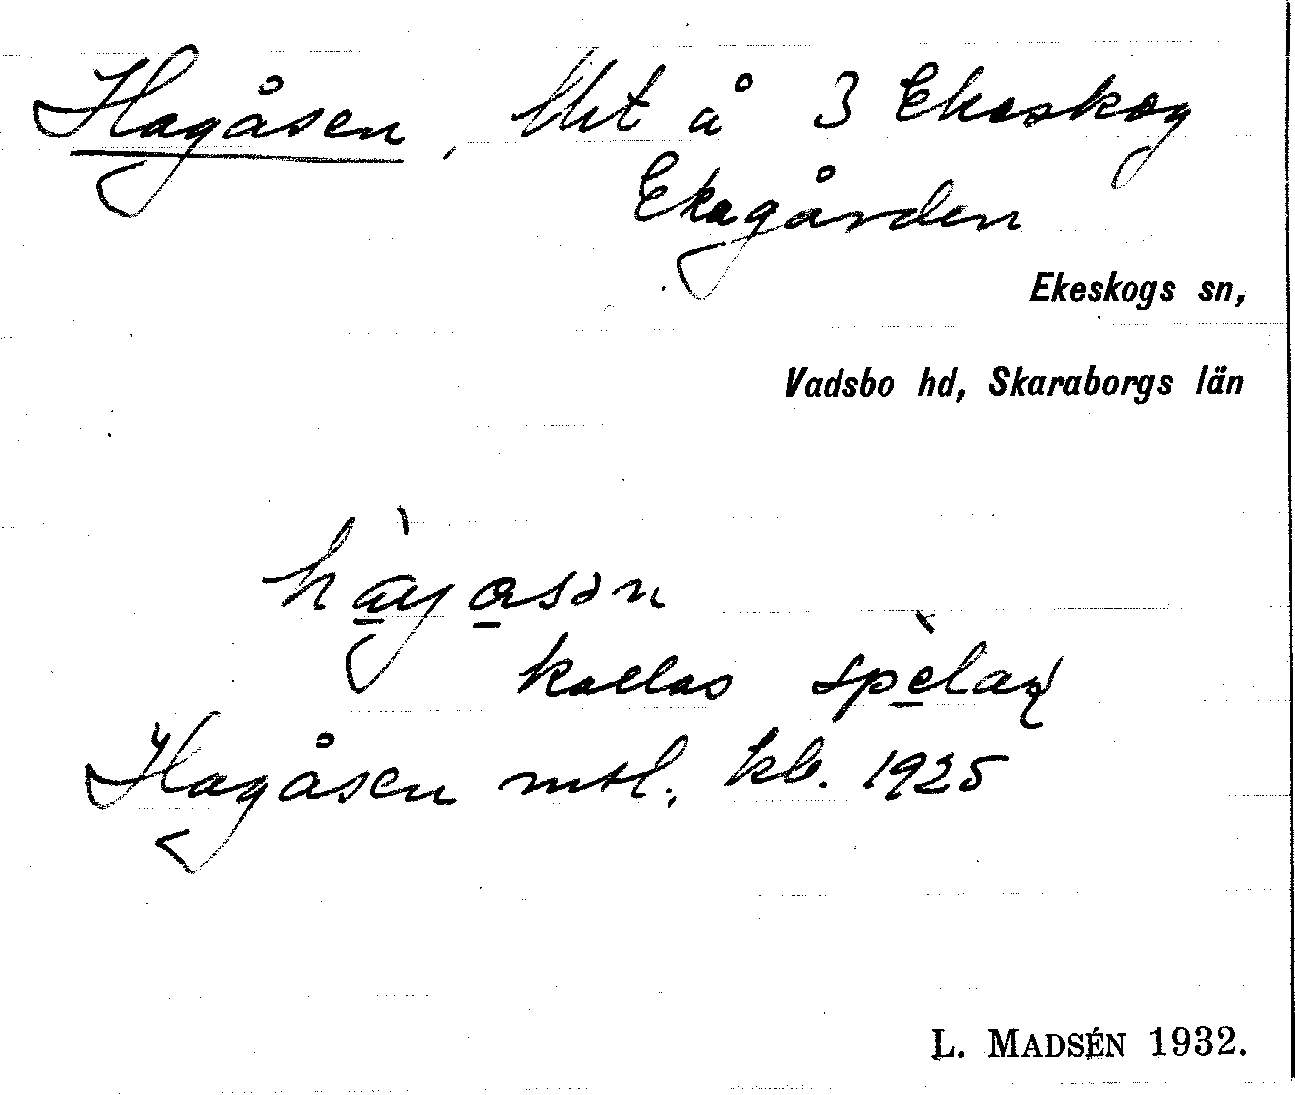 Hagåsen, lht å 3 Ekeskog
Ekagården
Ekeskogs sn,
Vadsbo hd, Skaraborgs län
kallas
Hagåsen mtl., kb. 1925
L. MADSÉN 1932.